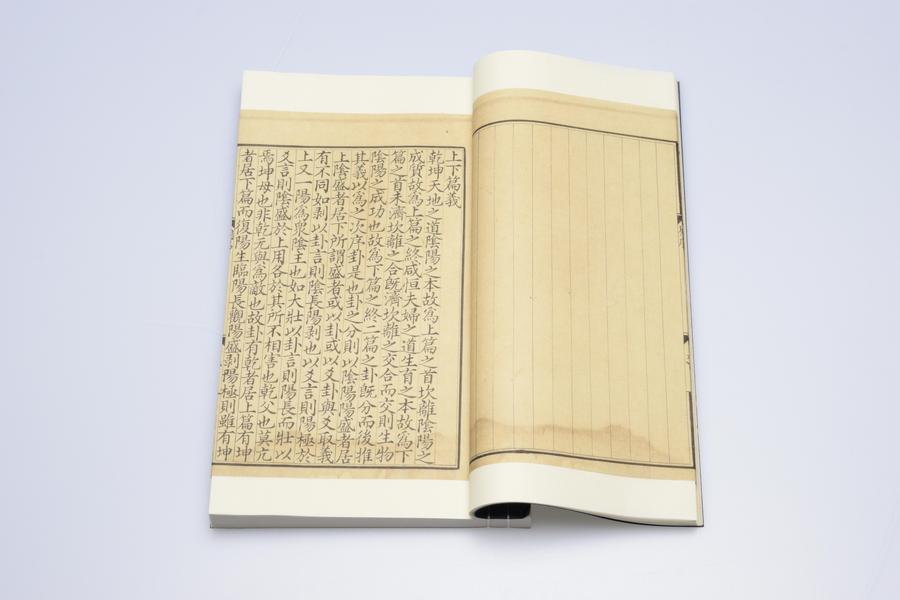 上下篇義
乾坤天地之道陰陽之本故為上篇之首坎離陰陽之
成質故為上篇之終咸恒夫婦之道生育之本故為下
篇之首未濟坎離之合既濟坎離之交合而交則生物
陰陽之成功也故為下篇之終二篇之卦既分而後推
其義以為之次序卦是也卦之分則以陰陽陽盛者居
上陰盛者居下所謂盛者或以卦或以爻卦與爻取義
有不同如剥以卦言則陰長陽剥也以爻言則陽極於
上又一陽為衆陰主也如大壯以卦言則陽長而壯以
爻言則陰盛於上用各於其所不相害也乾父也莫亢
焉坤母也非乾无與為敵也故卦有乾者居上篇有坤
者居下篇而復陽生臨陽長觀陽盛剥陽極則雖有坤